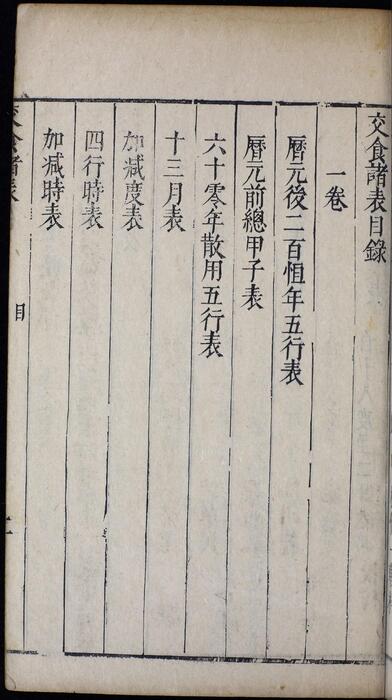 交食諸表目錄
一卷
曆元後二百恒年五行表
曆元前總甲子表
六十零年散用五行表
十三月表
加减度表
四行時表
加减時表
交食諸表
目